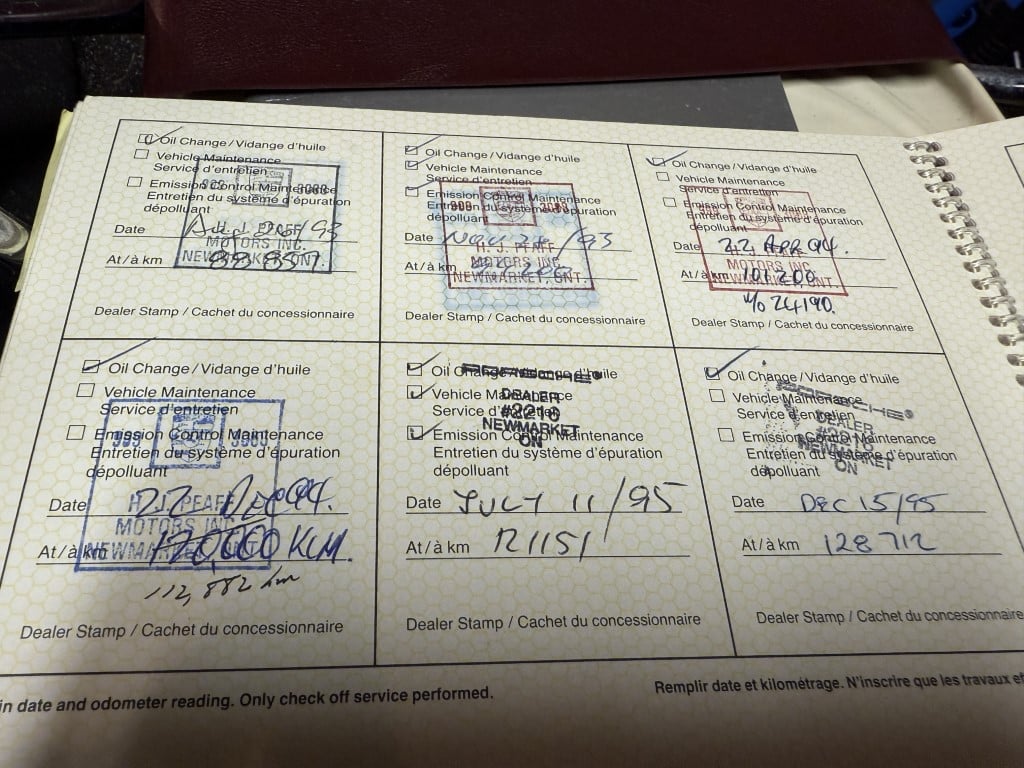 Oil Change / Vidange d'huile
Vehicle Maintenance
Service d'entretien
Emission Control Maintenance
Entretien du système d'épuration
dépolluant
Date /93
MOTORS INC.
At / à km
NEWMARKET, ONT.
Dealer Stamp / Cachet du concessionnaire
Oil Change / Vidange d'huile
Vehicle Maintenance
Service d'entretien
Emission Control Maintenance
Entretien du système d'épuration
dépolluant
Date /93
H. J. PFAFF
MOTORS INC.
At / à km
NEWMARKET, ONT.
Dealer Stamp / Cachet du concessionnaire
Oil Change / Vidange d'huile
Vehicle Maintenance
Service d'entretien
Emission Control Maintenance
Entretien du système d'épuration
dépolluant
Date 22 APR 94.
MOTORS INC.
At / à km 101200
NEWMARKET, ONT.
W/O 24190.
Dealer Stamp / Cachet du concessionnaire
Oil Change / Vidange d'huile
Vehicle Maintenance
Service d'entretien
Emission Control Maintenance
Entretien du système d'épuration
dépolluant
H. J. PFAFF
Date 22 DEC 94.
MOTORS INC.
At / à km 120,000 KLM.
NEWMARKET, ONT.
112,882 km
Dealer Stamp / Cachet du concessionnaire
Oil Change / Vidange d'huile
PORSCHE
Vehicle Maintenance
DEALER
Service d'entretien
#2210
NEWMARKET
ON
Emission Control Maintenance
Entretien du système d'épuration
dépolluant
Date JULY 11/95
At / à km 121151
Dealer Stamp / Cachet du concessionnaire
Oil Change / Vidange d'huile
PORSCHE
Vehicle Maintenance
Service d'entretien
DEALER
Emission Control Maintenance
NEWMARKET
ON
Entretien du système d'épuration
dépolluant
Date DEC 15/95
At / à km 128712
Dealer Stamp / Cachet du concessionnaire
in date and odometer reading. Only check off service performed.
Remplir date et kilométrage. N'inscrire que les travaux